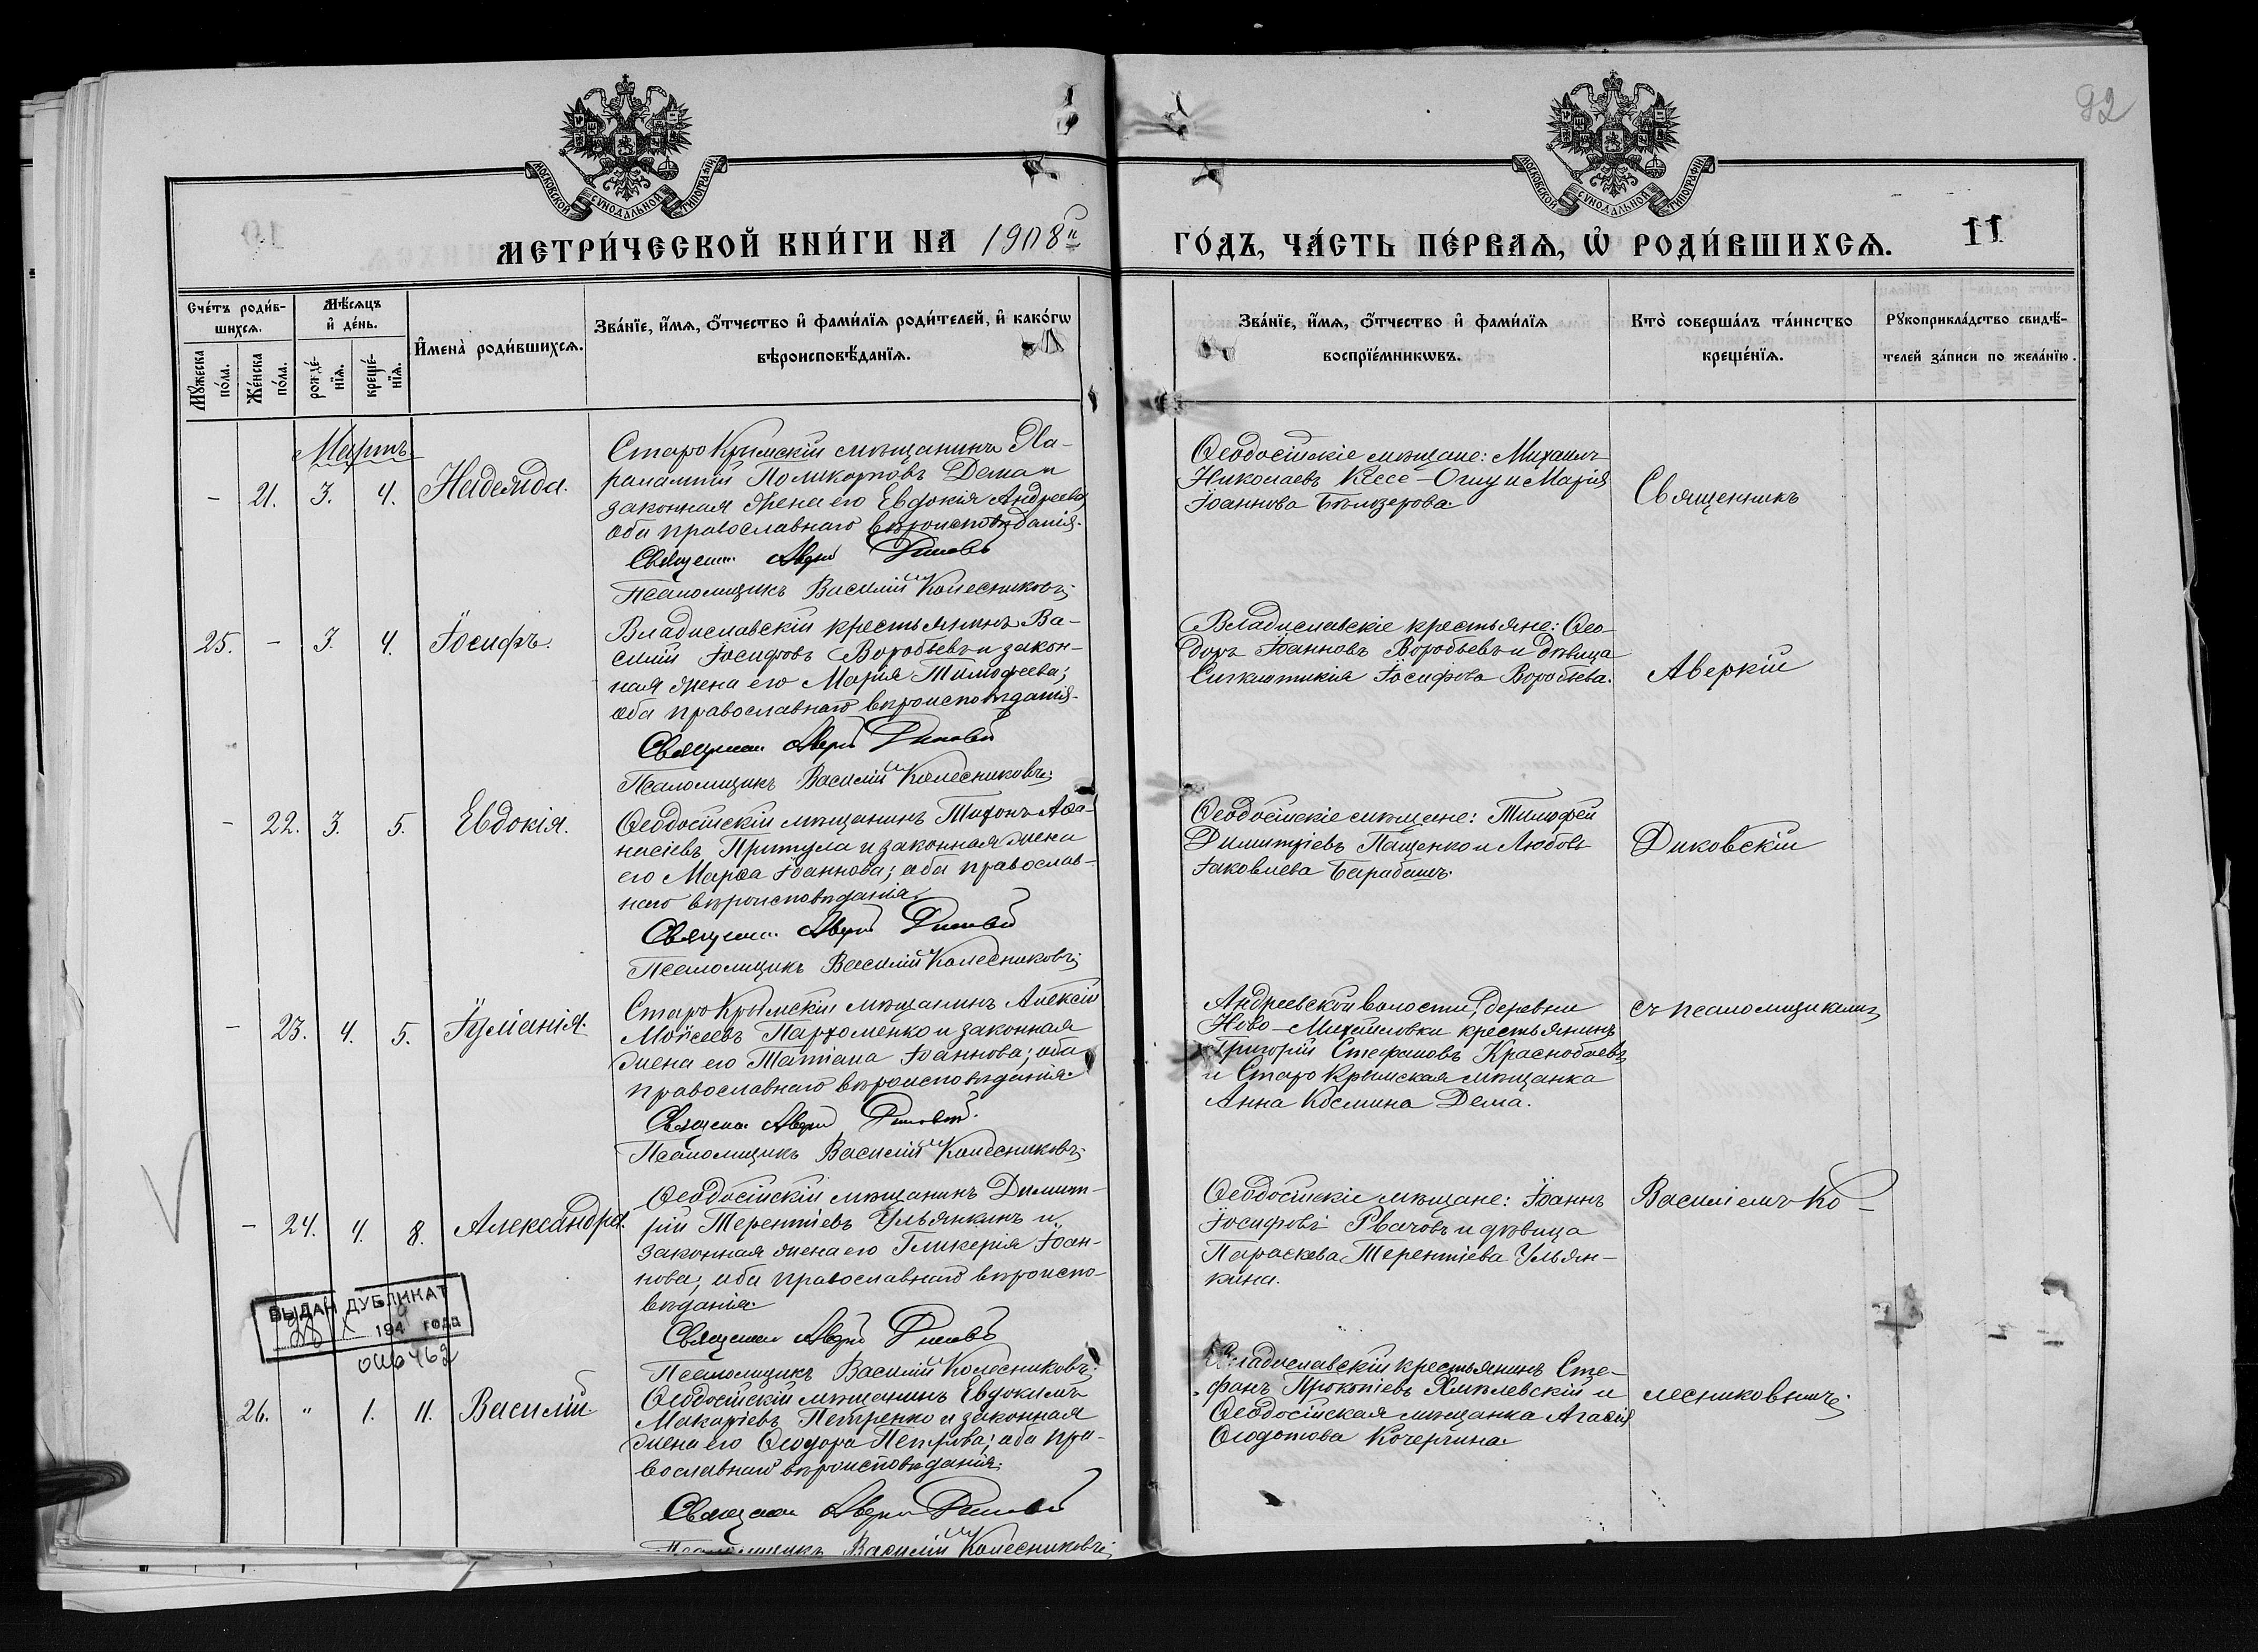 92
МОСКОВСКОЙ СѴНОДАЛЬНОЙ ТИПОГРАФІИ
МОСКОВСКОЙ СѴНОДАЛЬНОЙ ТИПОГРАФІИ
МЕТРИ́ЧЕСКОЙ КНИ́ГИ НА 1908й ГО́ДЪ, ЧА́СТЬ ПЕ́РВАѦ, Ѡ РОДИ́ВШИХСѦ. 11
Сче́тъ роди́в-
шихсѧ.
Мꙋжеска по́ла.
Же́нска по́ла.
Мѣ́сѧцъ
и҆ де́нь.
рожде́-
нїѧ.
креще́-
нїѧ.
И҆мена̀ роди́вшихсѧ.
Зва́нїе, и҆́мѧ, ѻ҆́тчество и҆ фами́лїѧ роди́телей, и҆ како́гѡ
вѣроисповѣ́данїѧ.
Зва́нїе, и҆́мѧ, ѻ҆́тчество и҆ фами́лїѧ
воспрїе́мникѡвъ.
Кто̀ соверша́лъ та́инство
креще́нїѧ.
Рꙋкоприкла́дство свидѣ́-
телей за́писи по жела́нїю.
Мартъ
- 21. 3. 4. Надежда.
Старо Крымскій мѣщанинъ Ха-
ралампій Поликарповъ Дема и
законная жена его Евдокія Андреева,
оба православнаго вѣроисповѣданія.
Священ. Авер
Псаломщикъ Василій Колесниковъ
Ѳеодосійскіе мѣщане: Михаилъ
Николаевъ Кесе-Оглу и Марія
Іоаннова Бѣлозерова.
Священникъ
25. - 3. 4. Іосифъ.
Владиславскій крестьянинъ Ва-
силій Іосифовъ Воробьевъ и закон-
ная жена его Марія Тимофеева;
оба православнаго вѣроисповѣданія.
Священ. Авер
Псаломщикъ Василій Колесниковъ
Владиславскіе крестьяне: Ѳео-
доръ Іоанновъ Воробьевъ и дѣвица
Синклитикія Іосифова Воробьева.
Аверкій
- 22. 3. 5. Евдокія.
Ѳеодосійскій мѣщанинъ Тихонъ Аѳа-
насіевъ Притула и законная жена
его Марѳа Іоаннова; оба православ-
наго вѣроисповѣданія.
Священ. Авер
Псаломщикъ Василій Колесниковъ
Ѳеодосійскіе мѣщане: Тимофей
Димитріевъ Пащенко и Любовь
Іаковлева Барабашъ.
Диковскій
- 23. 4. 5. Іуліанія.
Старо Крымскій мѣщанинъ Алексій
Моисеевъ Пархоменко и законная
жена его Татіана Іоаннова; оба
православнаго вѣроисповѣданія.
Священ. Авер
Псаломщикъ Василій Колесниковъ
Андреевской волости, деревни
Ново-Михайловки крестьянинъ
Григорій Стефановъ Краснобаевъ
и Старо Крымская мѣщанка
Анна Космина Дема.
съ псаломщикомъ
- 24. 4. 8. Александра.
Ѳеодосійскій мѣщанинъ Димит-
рій Терентіевъ Ульянкинъ и
законная жена его Гликерія Іоан-
нова; оба православнаго вѣроиспо-
вѣданія.
Священ. Авер
Псаломщикъ Василій Колесниковъ
Ѳеодосійскіе мѣщане: Іоаннъ
Іосифовъ Рвачовъ и дѣвица
Параскева Терентіева Ульян-
кина.
Василіемъ Ко-
ВЫДАН ДУБЛИКАТ
28 X 194 года
462
26. " 1. 11. Василій.
Ѳеодосійскій мѣщанинъ Евдокимъ
Макаріевъ Петренко и законная
жена его Ѳеодора Петрова; оба пра-
вославнаго вѣроисповѣданія.
Священ. Авер
Псаломщикъ Василій Колесниковъ
Владиславскій крестьянинъ Сте-
фанъ Прокопіевъ Хмѣлевскій и
Ѳеодосійская мѣщанка Агаѳія
Ѳеодотова Кочергина.
лесниковымъ.